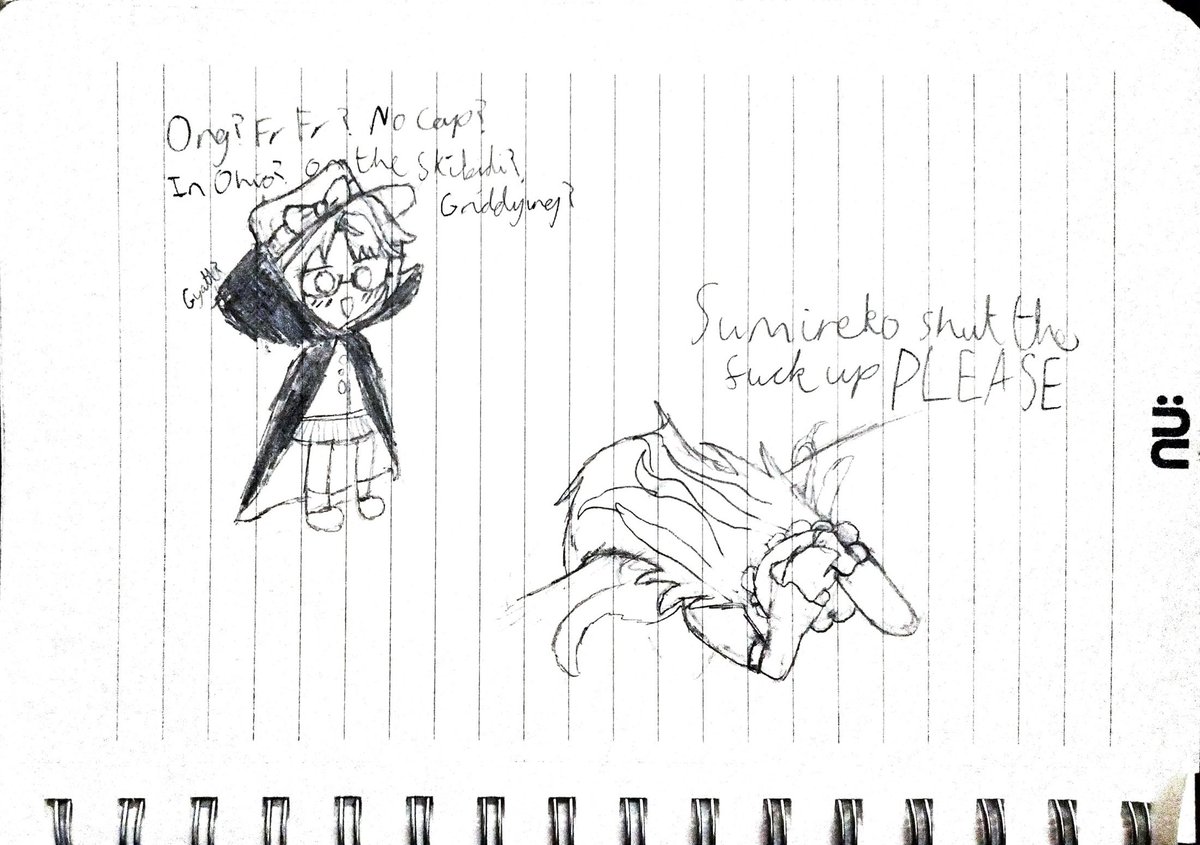 Ong? Fr Fr? No Cap?
In Ohio? on the Skibidi?
Griddying?
Gyatt?
Sumireko shut the
fuck up PLEASE
nu: